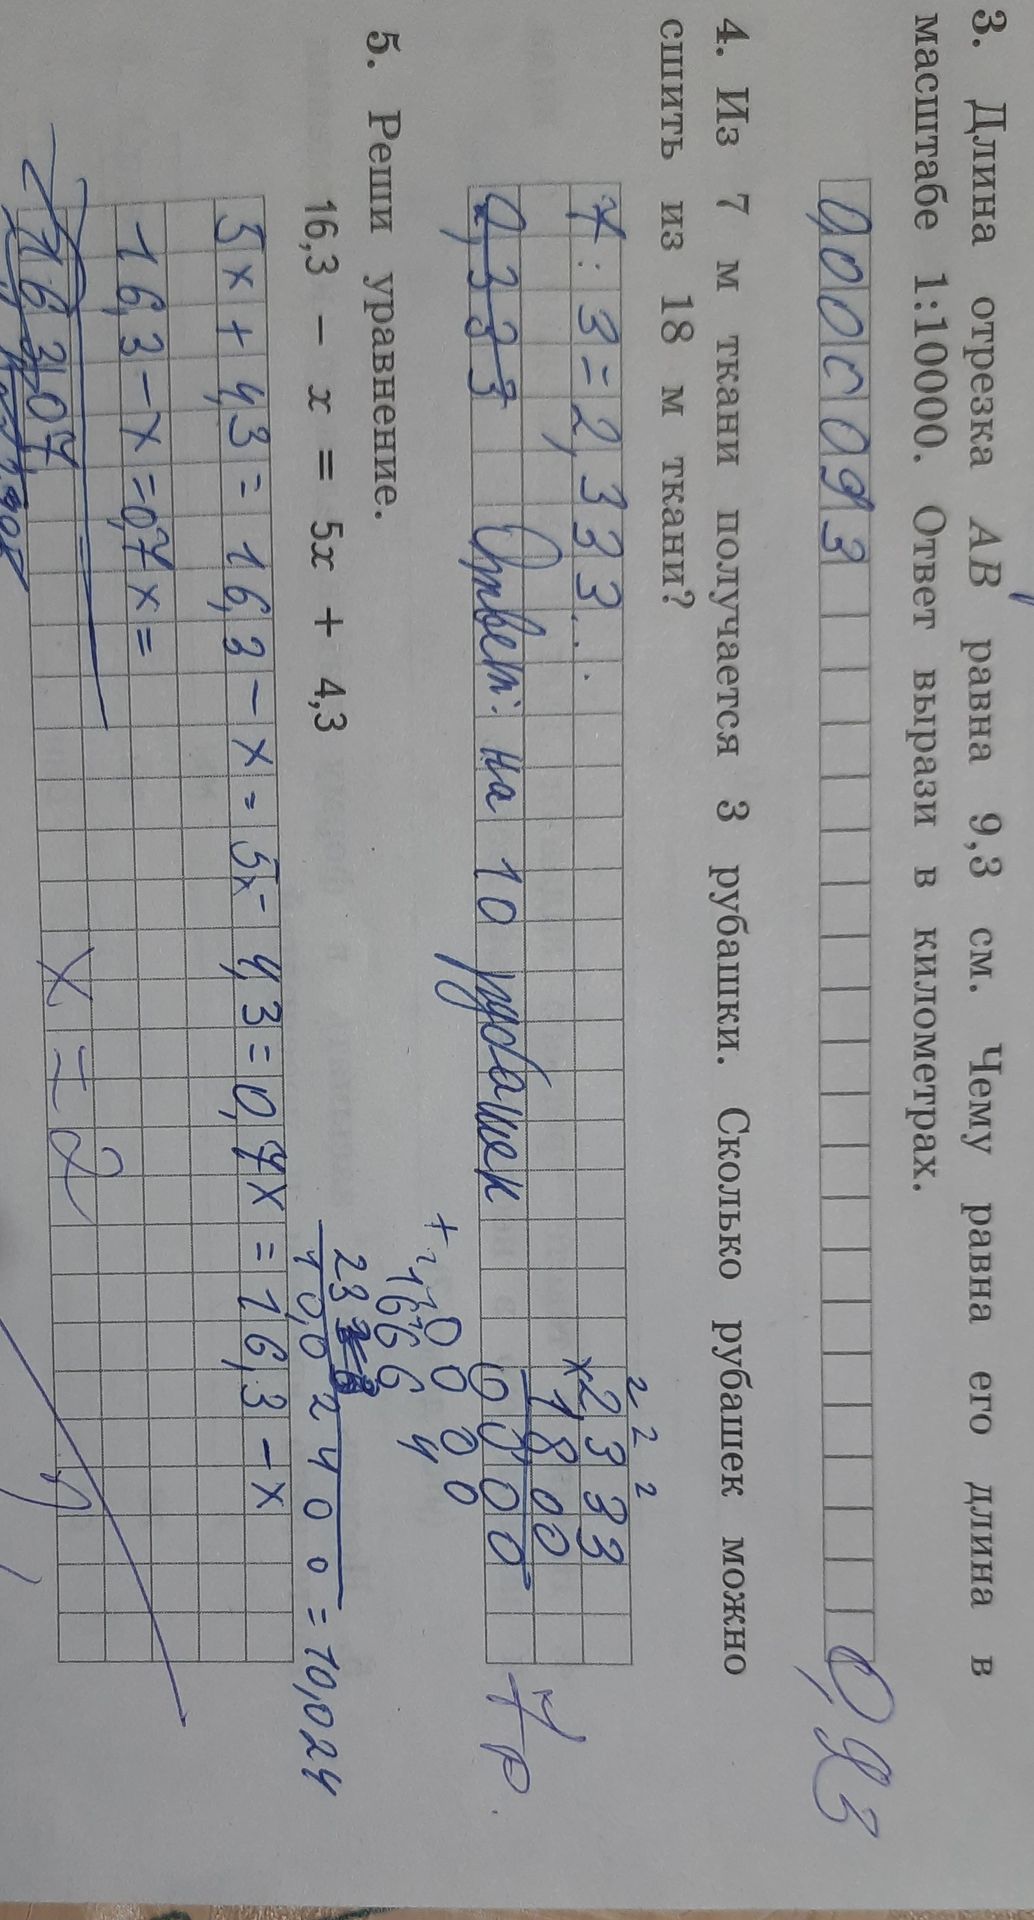 3. Длина отрезка AB равна 9,3 см. Чему равна его длина в
масштабе 1:10000. Ответ вырази в километрах.
0,000093
0,93
4. Из 7 м ткани получается 3 рубашки. Сколько рубашек можно
сшить из 18 м ткани?
7:3=2,333...
×2333
1800
0,333
Ответ: на 10 рубашек
0000
7 р.
+ 0000
16664
23
10,02400=10,024
5. Реши уравнение.
16,3 − x = 5x + 4,3
5x+4,3=16,3−x=5x−4,3=0,7x=16,3−x
16,3−x=0,7x=
16,3
0,7
x=2